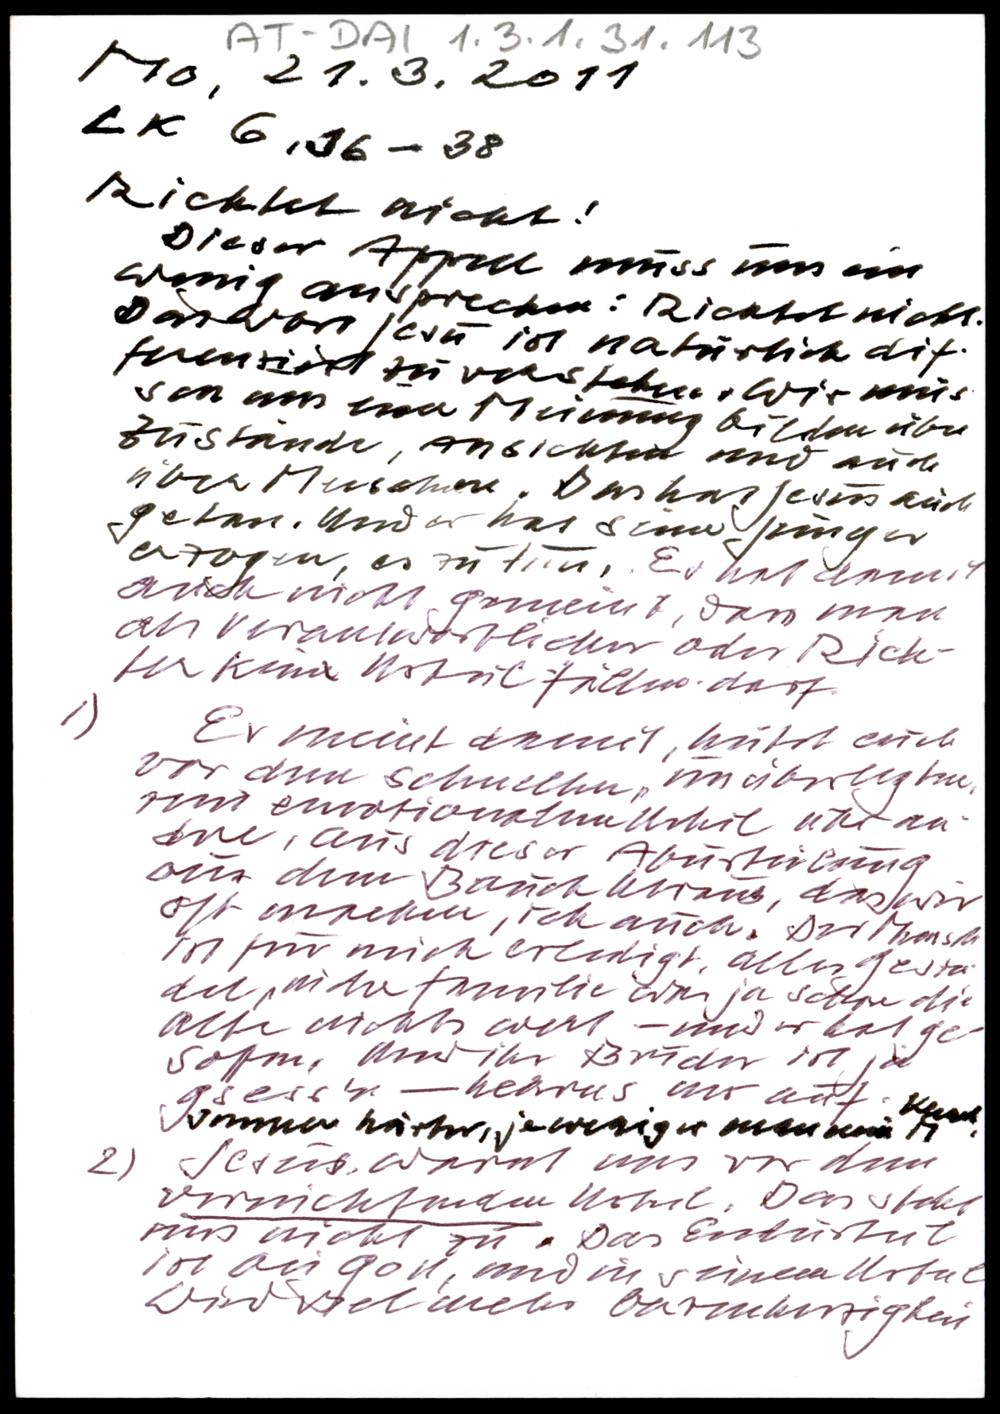 AT-DAI 1.3.1.31.113
Mo, 21.3.2011
LK 6,36-38
Richtet nicht!
Dieser Appell muss uns ein
wenig ansprechen: Richtet nicht.
Das Wort Jesu ist natürlich dif-
ferenziert zu verstehen. Wir müs
sen uns eine Meinung bilden über
Zustände, Ansichten und auch
über Menschen. Das hat Jesus auch
getan. Und er hat seine Jünger
erzogen, es zu tun. Er hat damit
auch nicht gemeint, dass man
als Verantwortlicher oder Rich-
ter keine Urteil fällen darf.
1) Er meint damit, hütet euch
vor dem schnellen, unüberlegten,
rein emotionalen Urteil über an-
dere, aus dieser Aburteilung
aus dem Bauch heraus, das wir
oft machen, ich auch. Der Mensch
ist für mich erledigt, alles
del, Familie war ja schon die
Alte nichts wert - und er hat ge-
soffen. Und ihr Bruder ist ja
gsess'n -
Immer härter, je weniger man ihn kennt.
2) Jesus warnt uns vor dem
vernichtenden Urteil. Das steht
uns nicht zu. Das Endurteil
ist bei Gott, und in seinem Urteil
wird viel mehr Barmherzigkeit